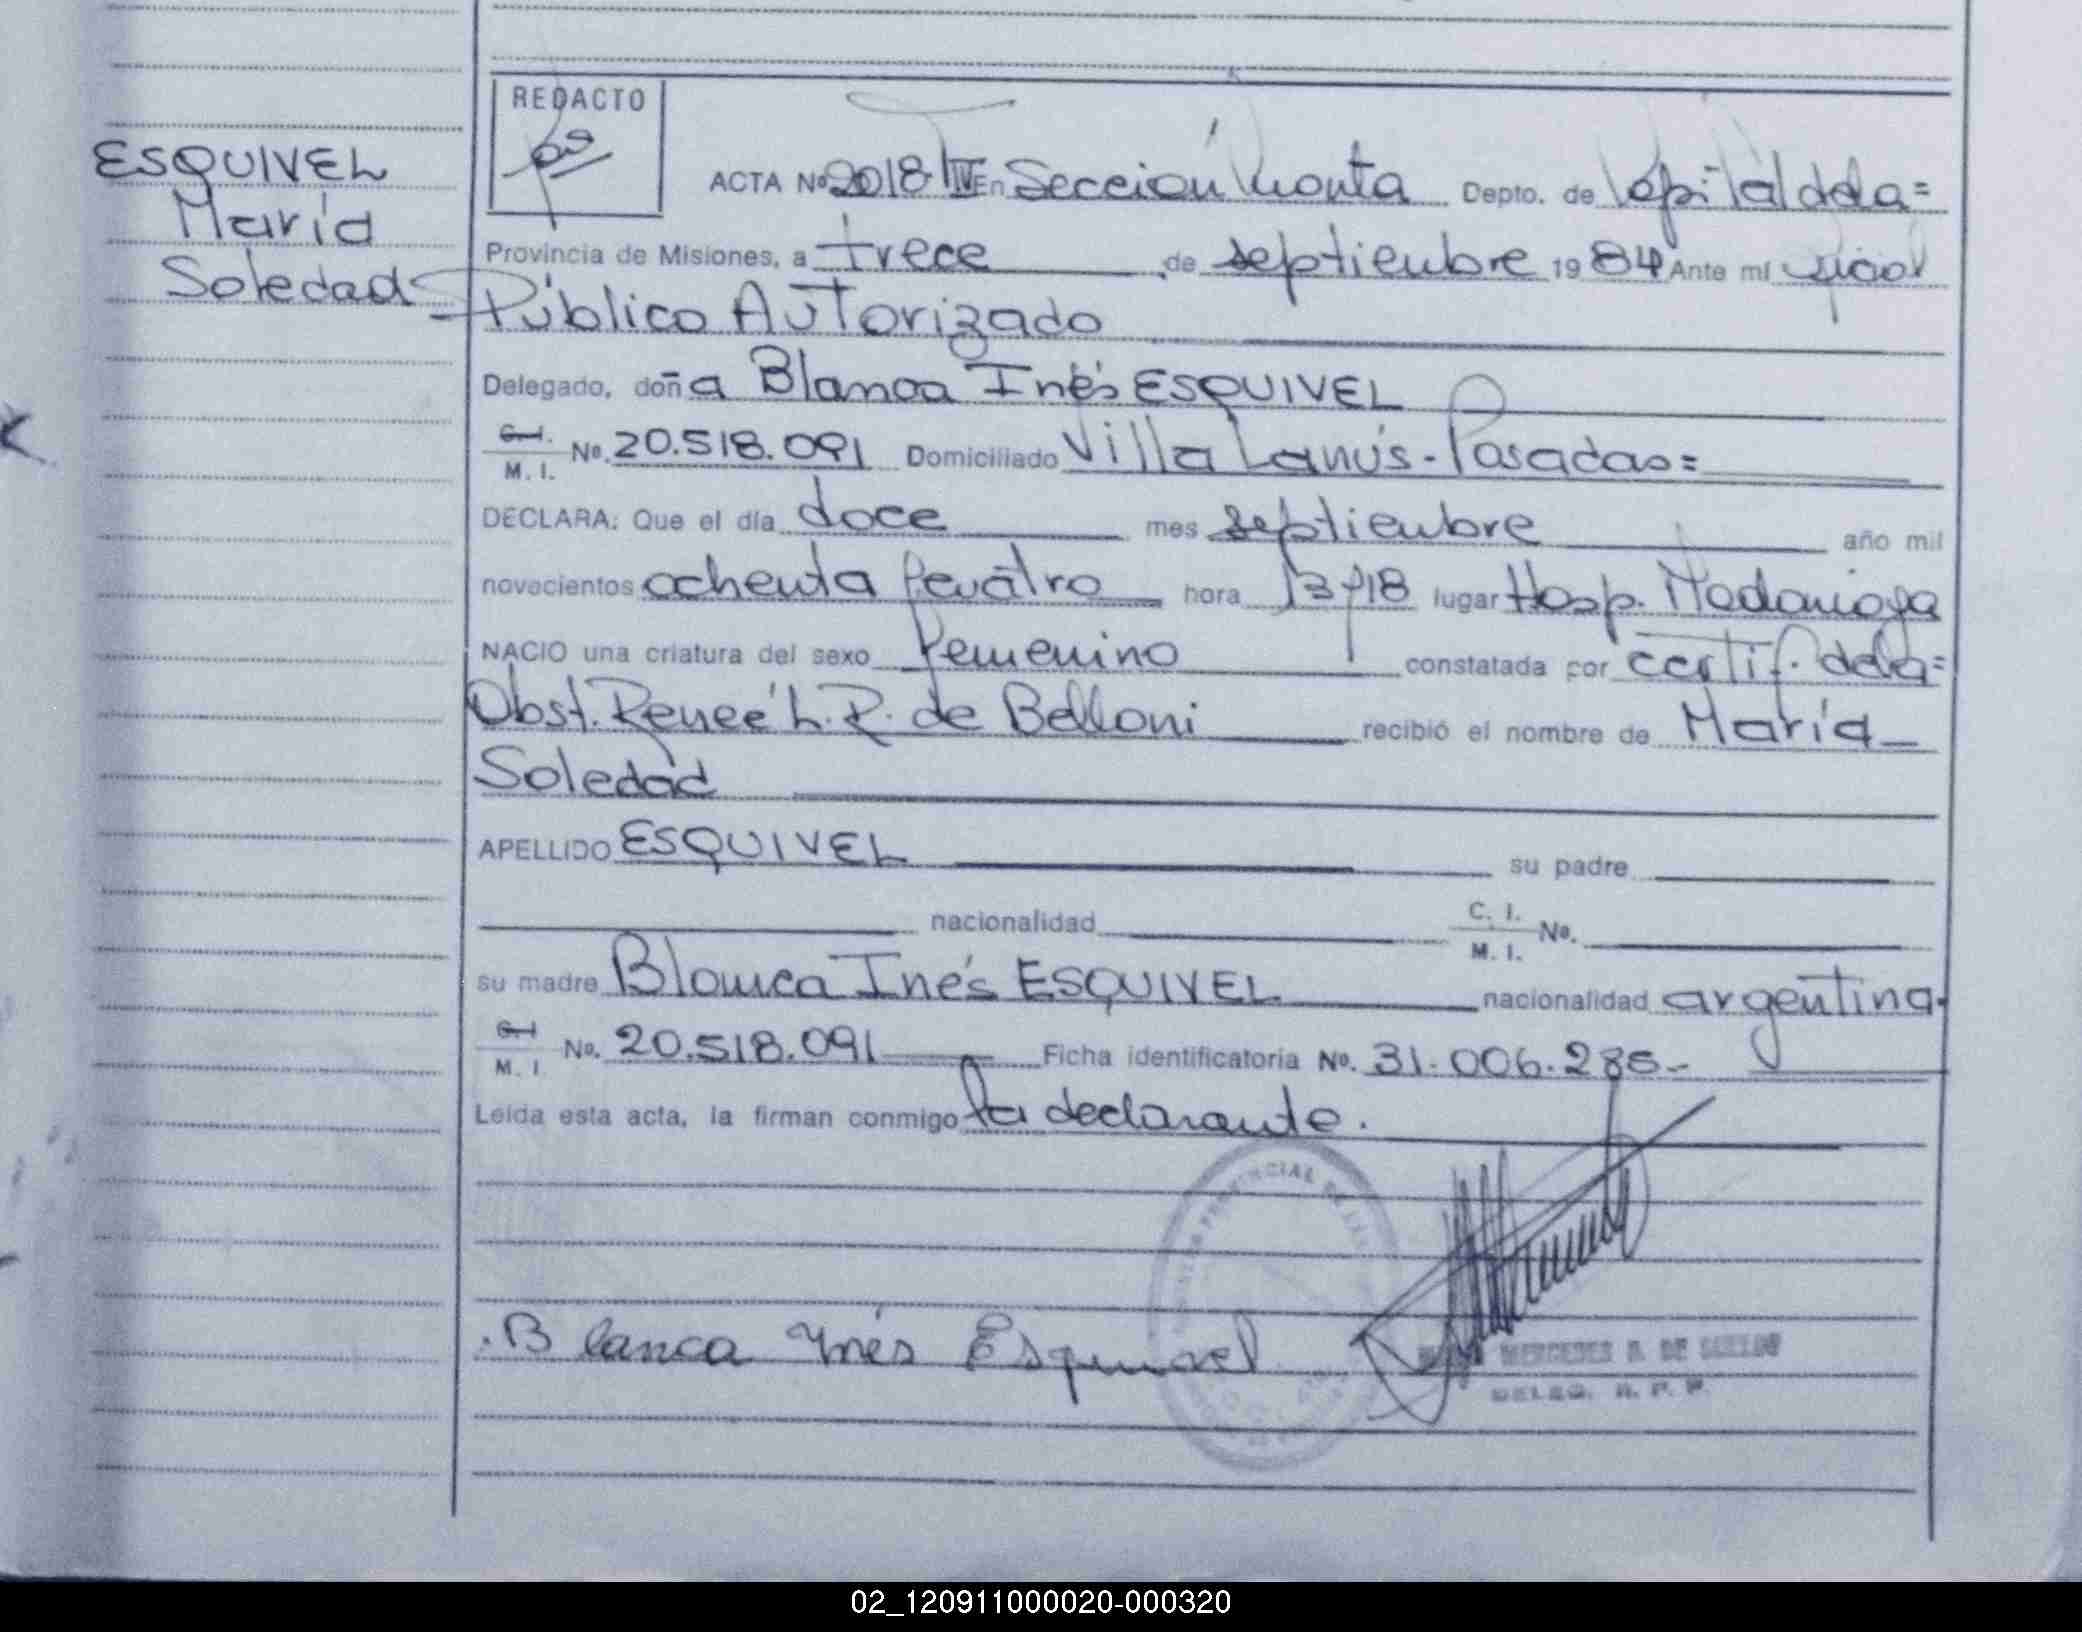 REDACTO
ESQUIVEL
María
Soledad
ACTA Nº 2018/IV En Sección Depto. de Capital dela=
Provincia de Misiones, a trece de septiembre 1984 Ante mí
Público Autorizado
Delegado, doña Blanca Inés ESQUIVEL
C.I. M. I. Nº. 20.518.091 Domiciliado Villa Lanús-Posadas=
DECLARA: Que el día doce mes septiembre año mil
novecientos ochenta y cuatro hora 13 y 18 lugar Hosp. Madariaga
NACIO una criatura del sexo femenino constatada por certif. dela=
Obst. Reneé L. R. de Belloni recibió el nombre de María
Soledad
APELLIDO ESQUIVEL su padre
nacionalidad C. I. M. I. Nº.
su madre Blanca Inés ESQUIVEL nacionalidad argentina.
C.I. M. I. Nº. 20.518.091 Ficha identificatoria Nº. 31.006.285-
Leída esta acta, la firman conmigo la declarante.
Blanca Inés Esquivel
MERCEDES DE
DELEG. R. P. P.
02_120911000020-000320